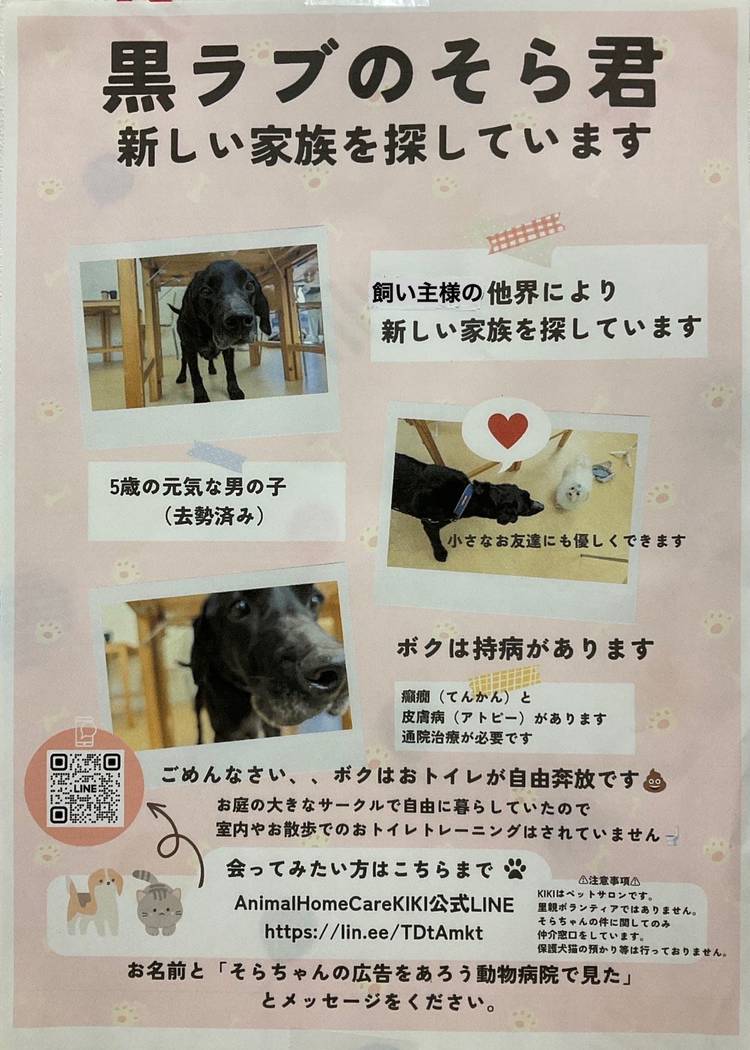 黒ラブのそら君
新しい家族を探しています
飼い主様の他界により
新しい家族を探しています
5歳の元気な男の子
（去勢済み）
小さなお友達にも優しくできます
ボクは持病があります
癲癇（てんかん）と
皮膚病（アトピー）があります
通院治療が必要です
ごめんなさい、、ボクはおトイレが自由奔放です💩
お庭の大きなサークルで自由に暮らしていたので
室内やお散歩でのおトイレトレーニングはされていません🚽
LINE
会ってみたい方はこちらまで
AnimalHomeCareKIKI公式LINE
https://lin.ee/TDtAmkt
⚠注意事項⚠
KIKIはペットサロンです。
里親ボランティアではありません。
そらちゃんの件に関してのみ
仲介窓口をしています。
保護犬猫の預かり等は行っておりません。
お名前と「そらちゃんの広告をあろう動物病院で見た」
とメッセージをください。